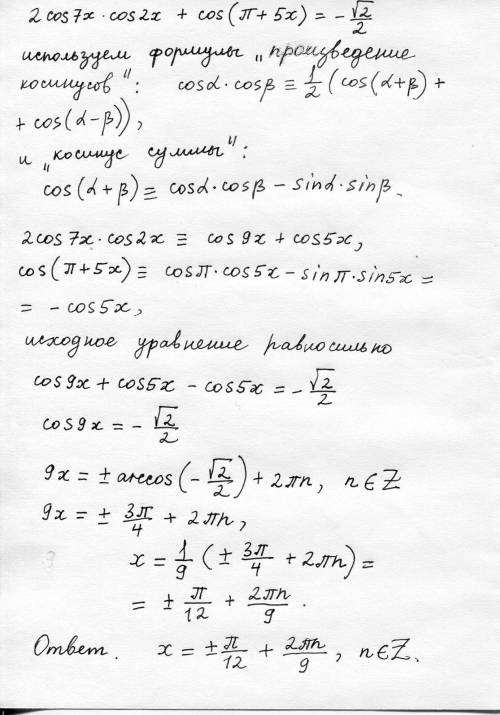 2cos7x·cos2x + cos(π+5x) = -√2/2
используем формулы „произведение
косинусов": cosα·cosβ ≡ 1/2 (cos(α+β) +
+ cos(α-β)),
и „косинус суммы":
cos(α+β) ≡ cosα·cosβ - sinα·sinβ.
2cos7x·cos2x ≡ cos9x + cos5x,
cos(π+5x) ≡ cosπ·cos5x - sinπ·sin5x =
= - cos5x,
исходное уравнение равносильно
cos9x + cos5x - cos5x = -√2/2
cos9x = -√2/2
9x = ± arccos(-√2/2) + 2πn, n∈Z
9x = ± 3π/4 + 2πn,
x = 1/9 (± 3π/4 + 2πn) =
= ± π/12 + 2πn/9.
Ответ. x = ± π/12 + 2πn/9, n∈Z.